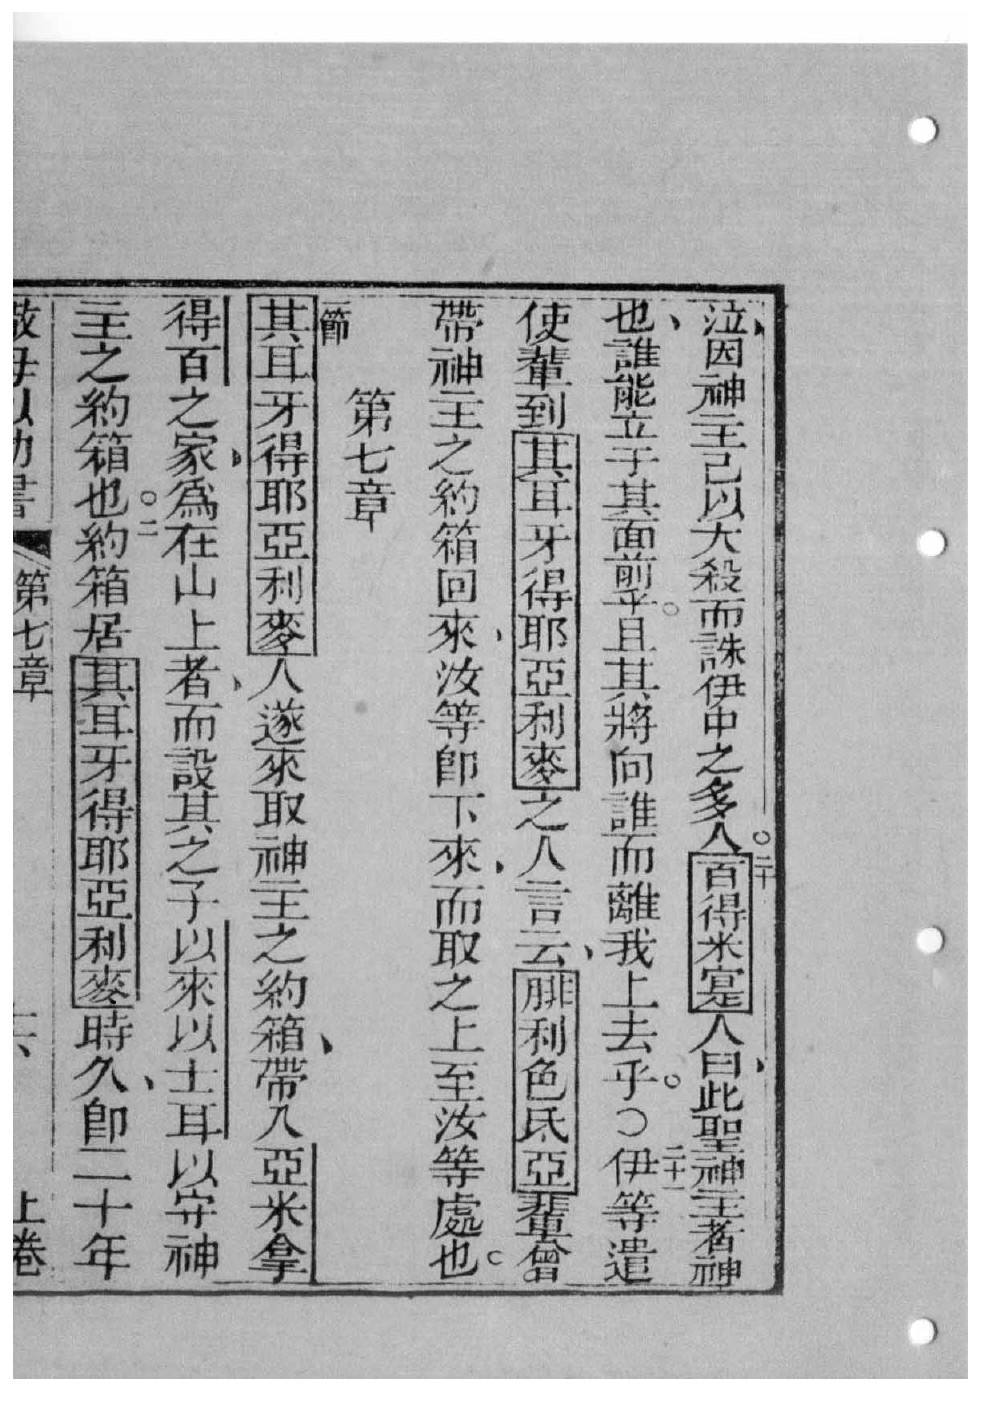 泣因神主已以大殺而誅伊中之多人○二十百得米宣是人曰此聖神主者神
也誰能立于其面前乎○且其將向誰而離我上去乎○○二十一伊等遣
使輩到其耳牙得耶亞利麥之人言云腓利色氏亞輩曾
帶神主之約箱回來汝等卽下來而取之上至汝等處也○
第七章
一節其耳牙得耶亞利麥人遂來取神主之約箱帶入亞米拿
得百之家爲在山上者而設其之子以來以士耳以守神
主之約箱也○二約箱居其耳牙得耶亞利麥時久卽二十年
第七章 上卷